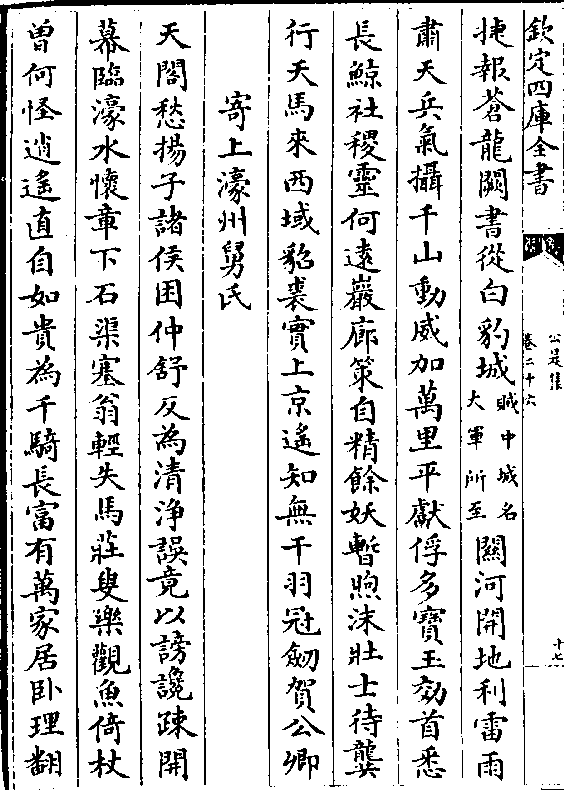 欽定四庫全書
公是集
卷二十六
十七
捷報蒼龍闕書從白豹城賊中城名大軍所至關河開地利雷雨
肅天兵氣攝千山動威加萬里平獻俘多寶玉効首悉
長鯨社稷靈何遠巖廊策自精餘妖暫喣沫壯士待龔
行天馬來西域貂裘實上京遙知無干羽冠劒賀公卿
寄上濠州舅氏
天閣愁揚子諸侯困仲舒反為清淨誤竟以謗讒疎開
幕臨濠水懷章下石渠塞翁輕失馬莊叟樂觀魚倚杖
曽何怪逍遙直自如貴為千騎長富有萬家居卧理翻